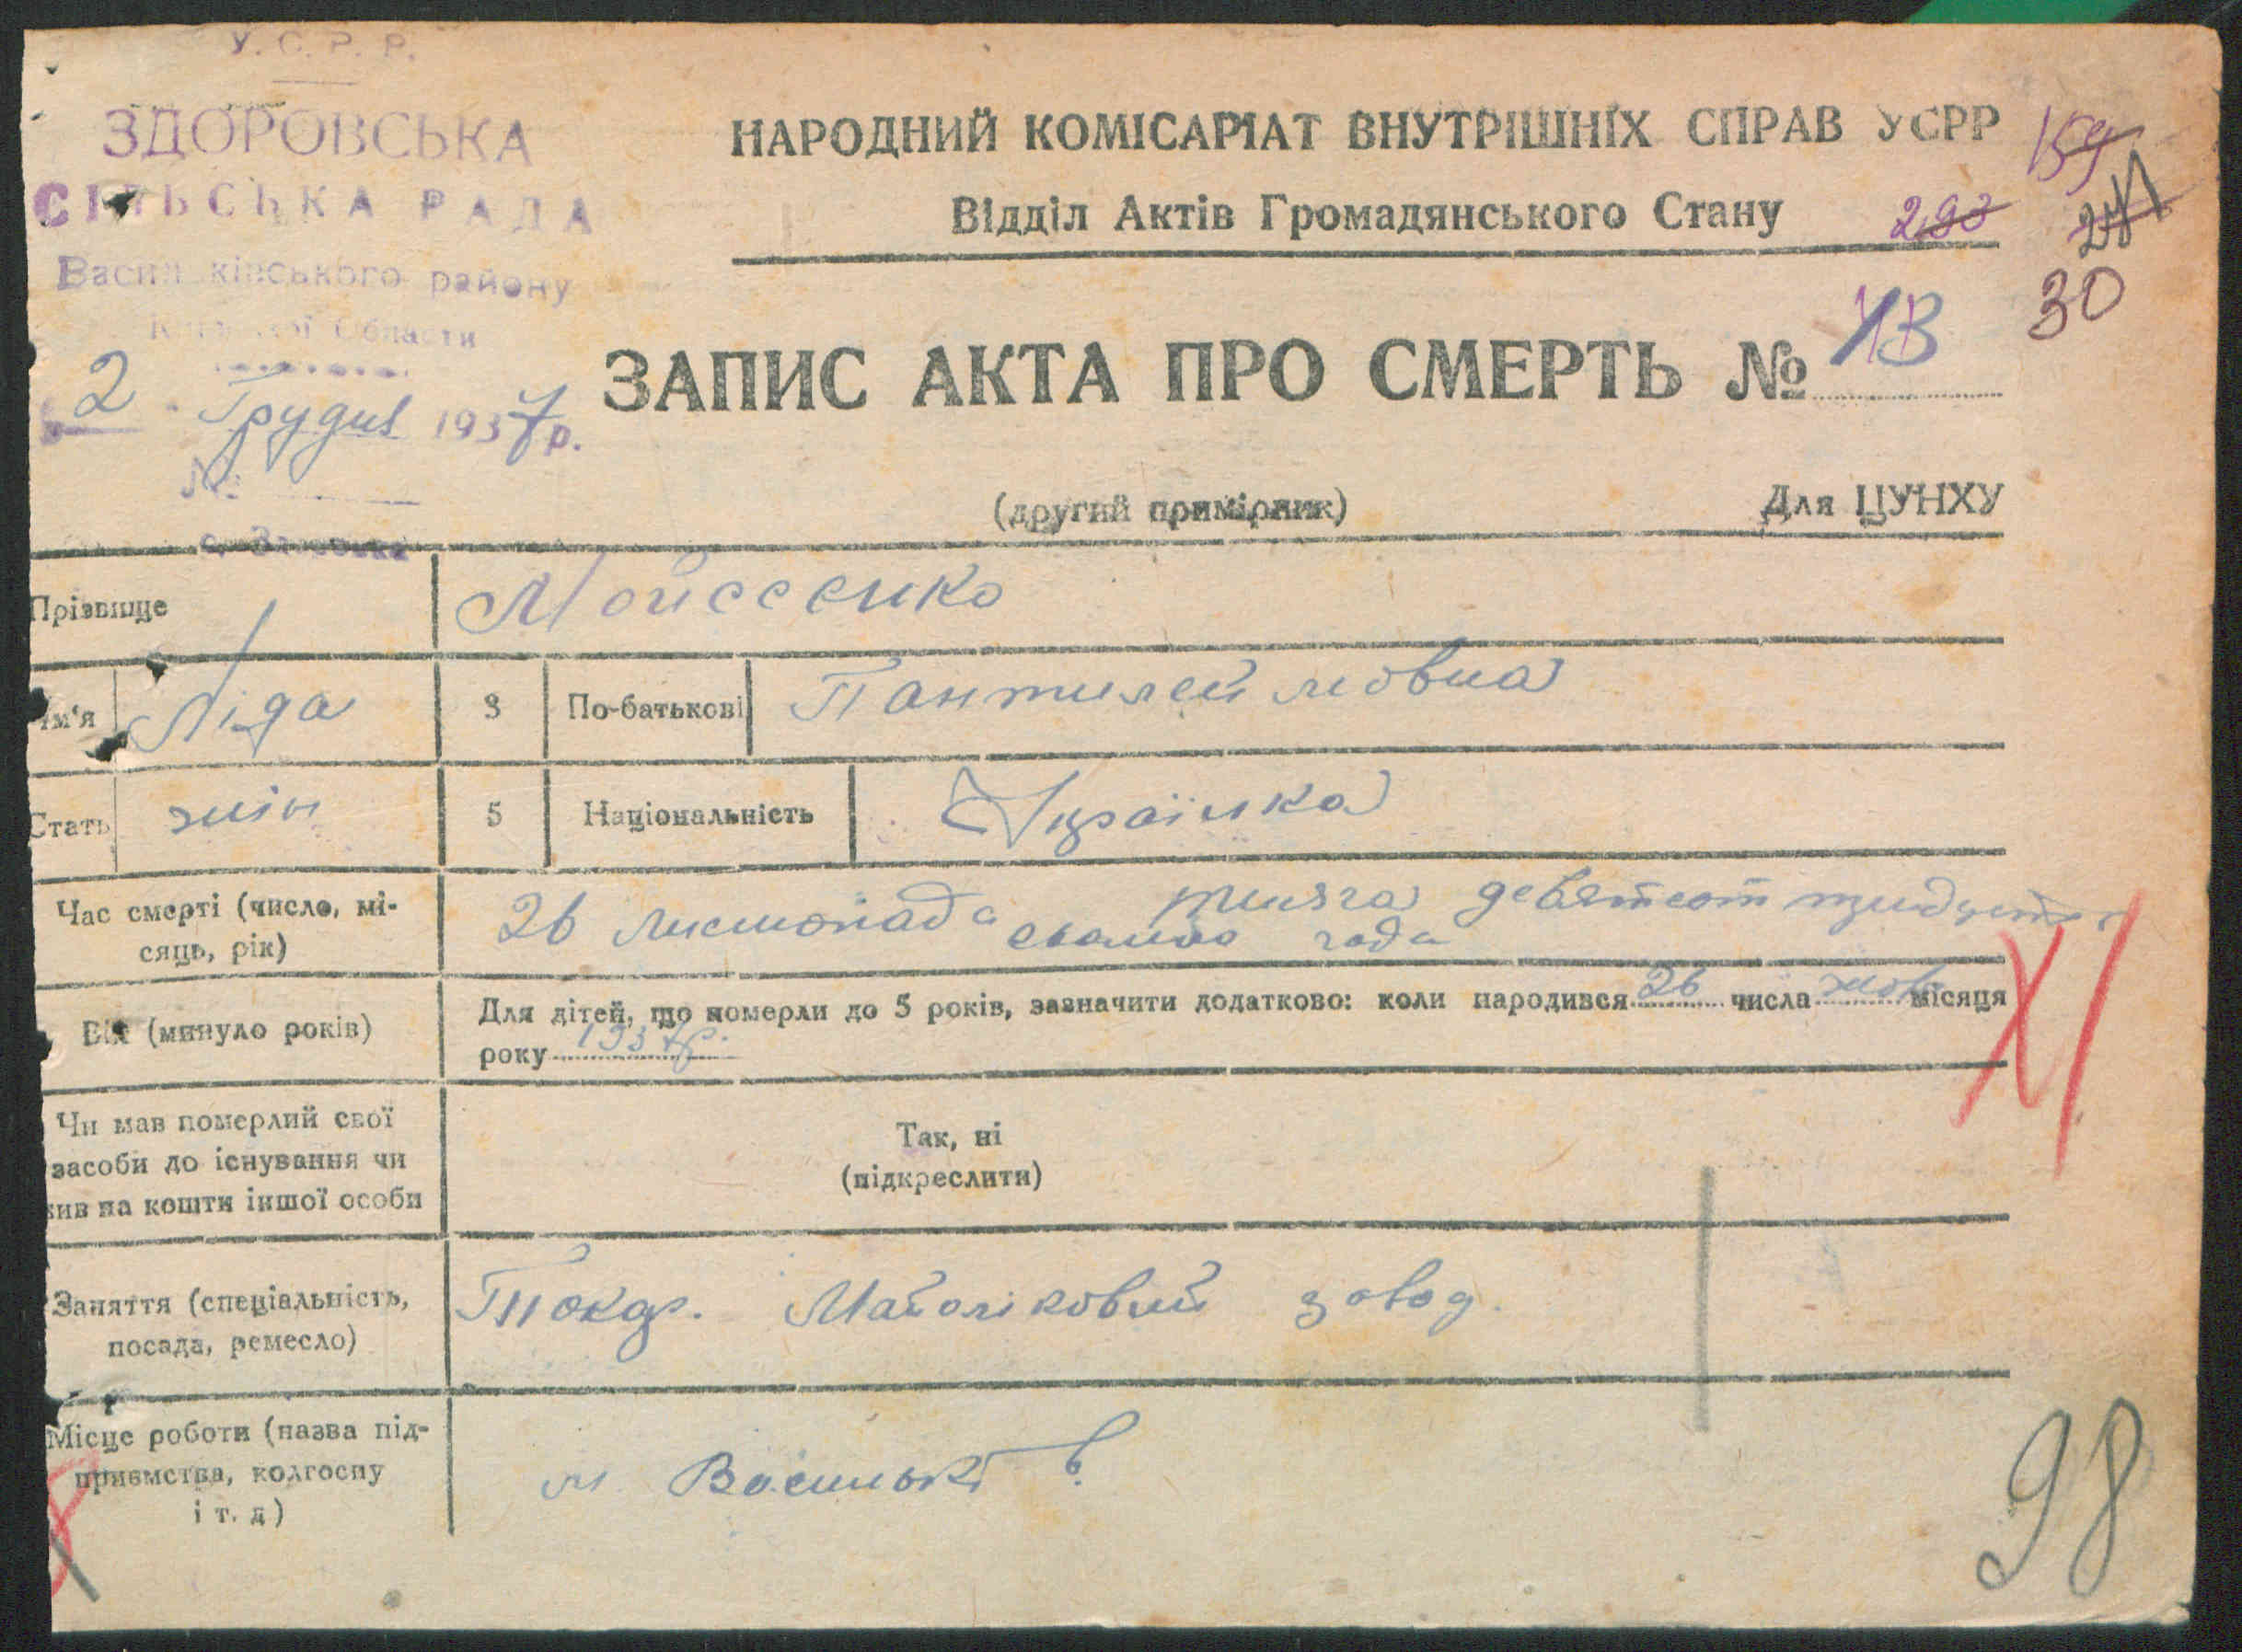 У. С. Р. Р.
ЗДОРОВСЬКА
СІЛЬСЬКА РАДА
Васильківського району
Київської Области
2 Грудня 1937р.
№
с. Здоровка
НАРОДНИЙ КОМІСАРІАТ ВНУТРІШНІХ СПРАВ УСРР
159
Відділ Актів Громадянського Стану
293
271
30
ЗАПИС АКТА ПРО СМЕРТЬ № 13
(другий примірник)
Для ЦУНХУ
Прізвище
Мойсеенко
Ім'я Ліда 3 По-батькові Пантилеймовна
Стать жін 5 Національність Українка
Час смерті (число, місяць, рік)
26 листопада тисяга девятсот тридцять
сьомого года
XI
Вік (минуло років)
Для дітей, що померли до 5 років, зазначити додатково: коли народився 26 числа жовт місяця
року 1937р.
Чи мав померлий свої
засоби до існування чи
жив на кошти іншої особи
Так, ні
(підкреслити)
Заняття (спеціальність,
посада, ремесло)
Токар. Майоліковий завод.
Місце роботи (назва під-
приємства, колгоспу
і т. д)
м. Васильків.
98